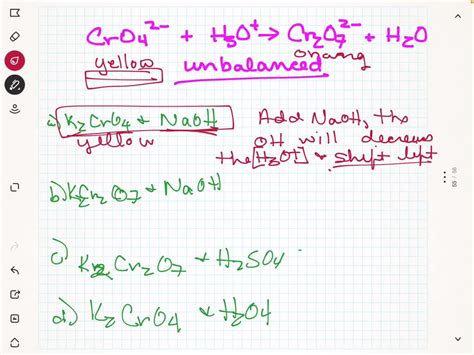 CrO4^2- + H3O+ → Cr2O7^2- + H2O
yellow orang
unbalanced
a) K2CrO4 + NaOH
yellow
Add NaOH, the
OH will decrease
the [H3O+] & shift left
b) K2Cr2O7 + NaOH
c) K2Cr2O7 + H2SO4
d) K2CrO4 + H2O4
55 / 56